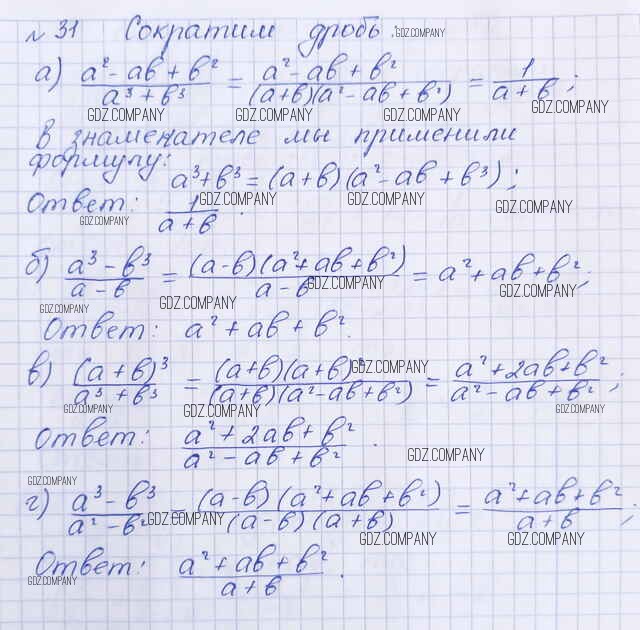 № 31 Сократим дробь. GDZ.COMPANY
а) (a² - ab + b²)/(a³ + b³) = (a² - ab + b²)/((a+b)(a² - ab + b²)) = 1/(a + b);
GDZ.COMPANY GDZ.COMPANY GDZ.COMPANY GDZ.COMPANY
В знаменателе мы применили
формулу:
a³+b³ = (a+b)(a² - ab + b³);
GDZ.COMPANY GDZ.COMPANY GDZ.COMPANY
Ответ: 1/(a + b).
GDZ.COMPANY
б) (a³ - b³)/(a - b) = ((a-b)(a²+ab+b²))/(a - b) = a²+ab+b²;
GDZ.COMPANY GDZ.COMPANY GDZ.COMPANY GDZ.COMPANY
Ответ: a² + ab + b².
в) (a + b)³/(a³ + b³) = ((a+b)(a+b)²)/((a+b)(a²-ab+b²)) = (a²+2ab+b²)/(a² - ab + b²);
GDZ.COMPANY GDZ.COMPANY GDZ.COMPANY GDZ.COMPANY
Ответ: (a² + 2ab + b²)/(a² - ab + b²).
GDZ.COMPANY
GDZ.COMPANY
г) (a³ - b³)/(a² - b²) = ((a-b)(a²+ab+b²))/((a-b)(a+b)) = (a²+ab+b²)/(a+b);
GDZ.COMPANY GDZ.COMPANY GDZ.COMPANY
Ответ: (a² + ab + b²)/(a + b).
GDZ.COMPANY